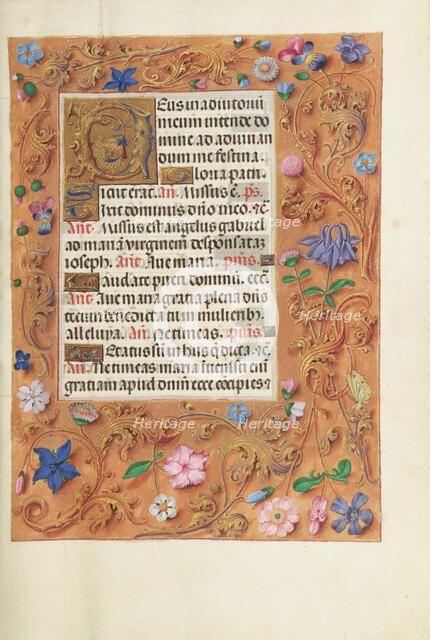 Deus in adiutoriu
meum intende do
mine ad adiuuan
dum me festina.
Gloria patri.
Sicut erat. An̄. Missus ē. ps.
Dixit dominus dño meo. ⁊c̄.
Ant̄. Missus est angelus gabriel
ad mariā virginem desponsatā
ioseph. Ant̄. Aue maria. psm̄s.
Laudate pueri dominū.
Ant̄. Aue maria gratia plena dn̄s
tecum benedicta tu in mulierib9.
alleluya. An̄. Ne timeas. psm̄s.
Letatus sū in hiis que dicta. ⁊c̄.
An̄. Ne timeas maria inuenisti
gratiam apud dn̄m ecce cōcipies
Heritage
Heritage
Heritage
Heritage